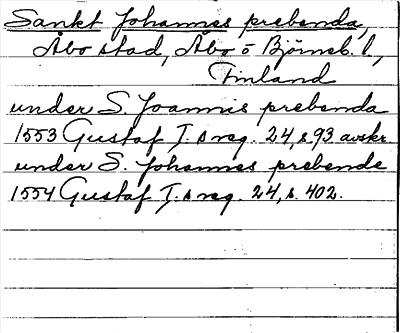 Sankt Johannes prebenda,
Åbo stad, Åbo o Björneb. l,
Finland
under S. Joannis prebenda
1553 Gustaf I.s reg. 24, s. 93 avskr.
under S. Johannes prebende
1554 Gustaf I.s reg. 24, s. 402.